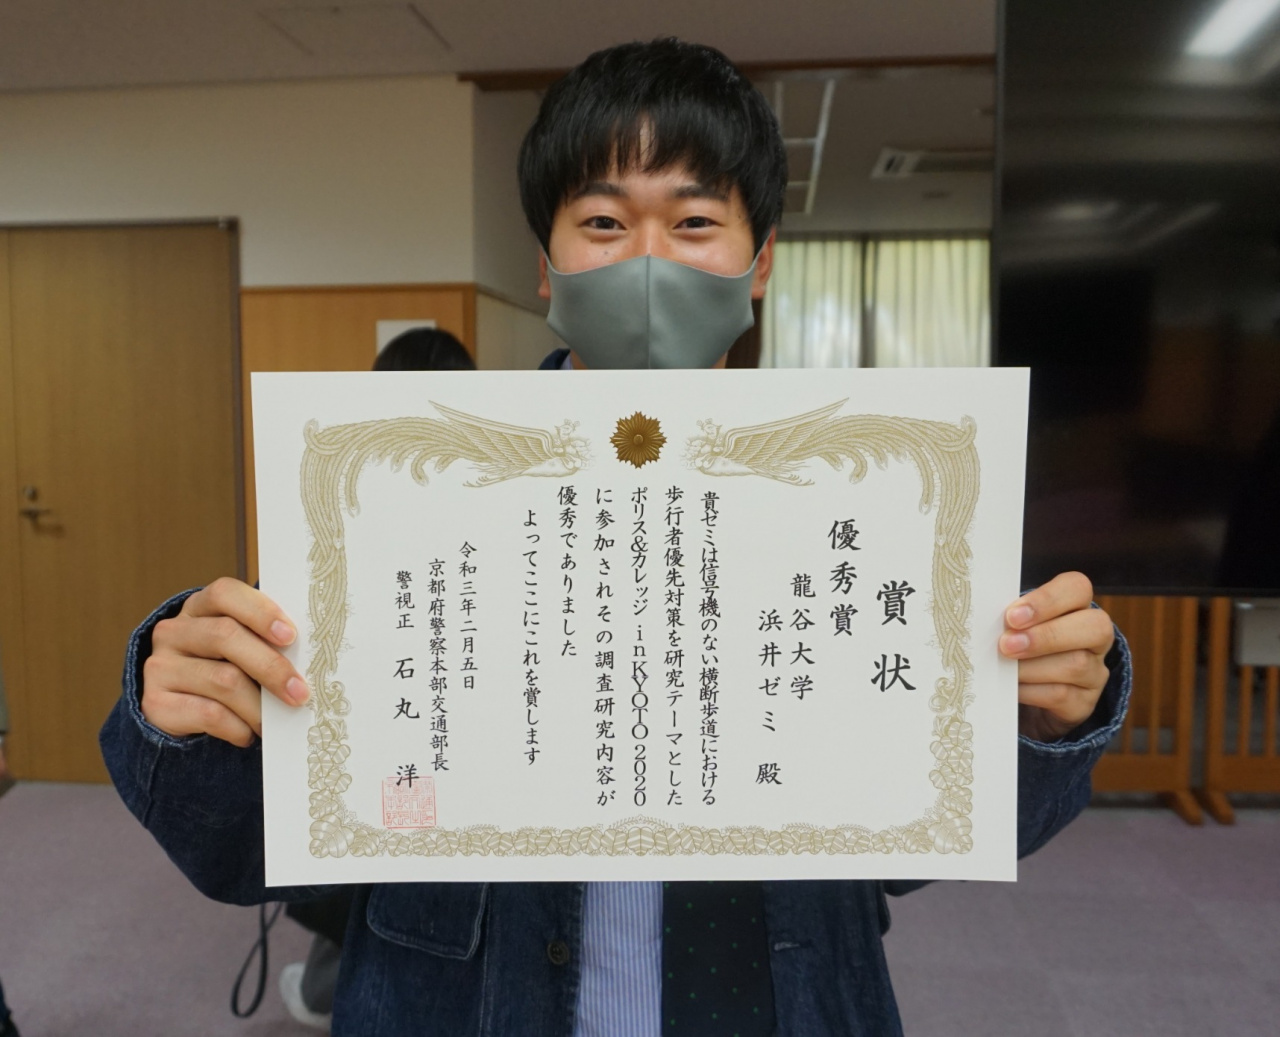 賞状
優秀賞
龍谷大学
浜井ゼミ 殿
貴ゼミは信号機のない横断歩道における
歩行者優先対策を研究テーマとした
ポリス&カレッジ in KYOTO 2020
に参加されその調査研究内容が
優秀でありました
よってここにこれを賞します
令和三年二月五日
京都府警察本部交通部長
警視正 石丸 洋